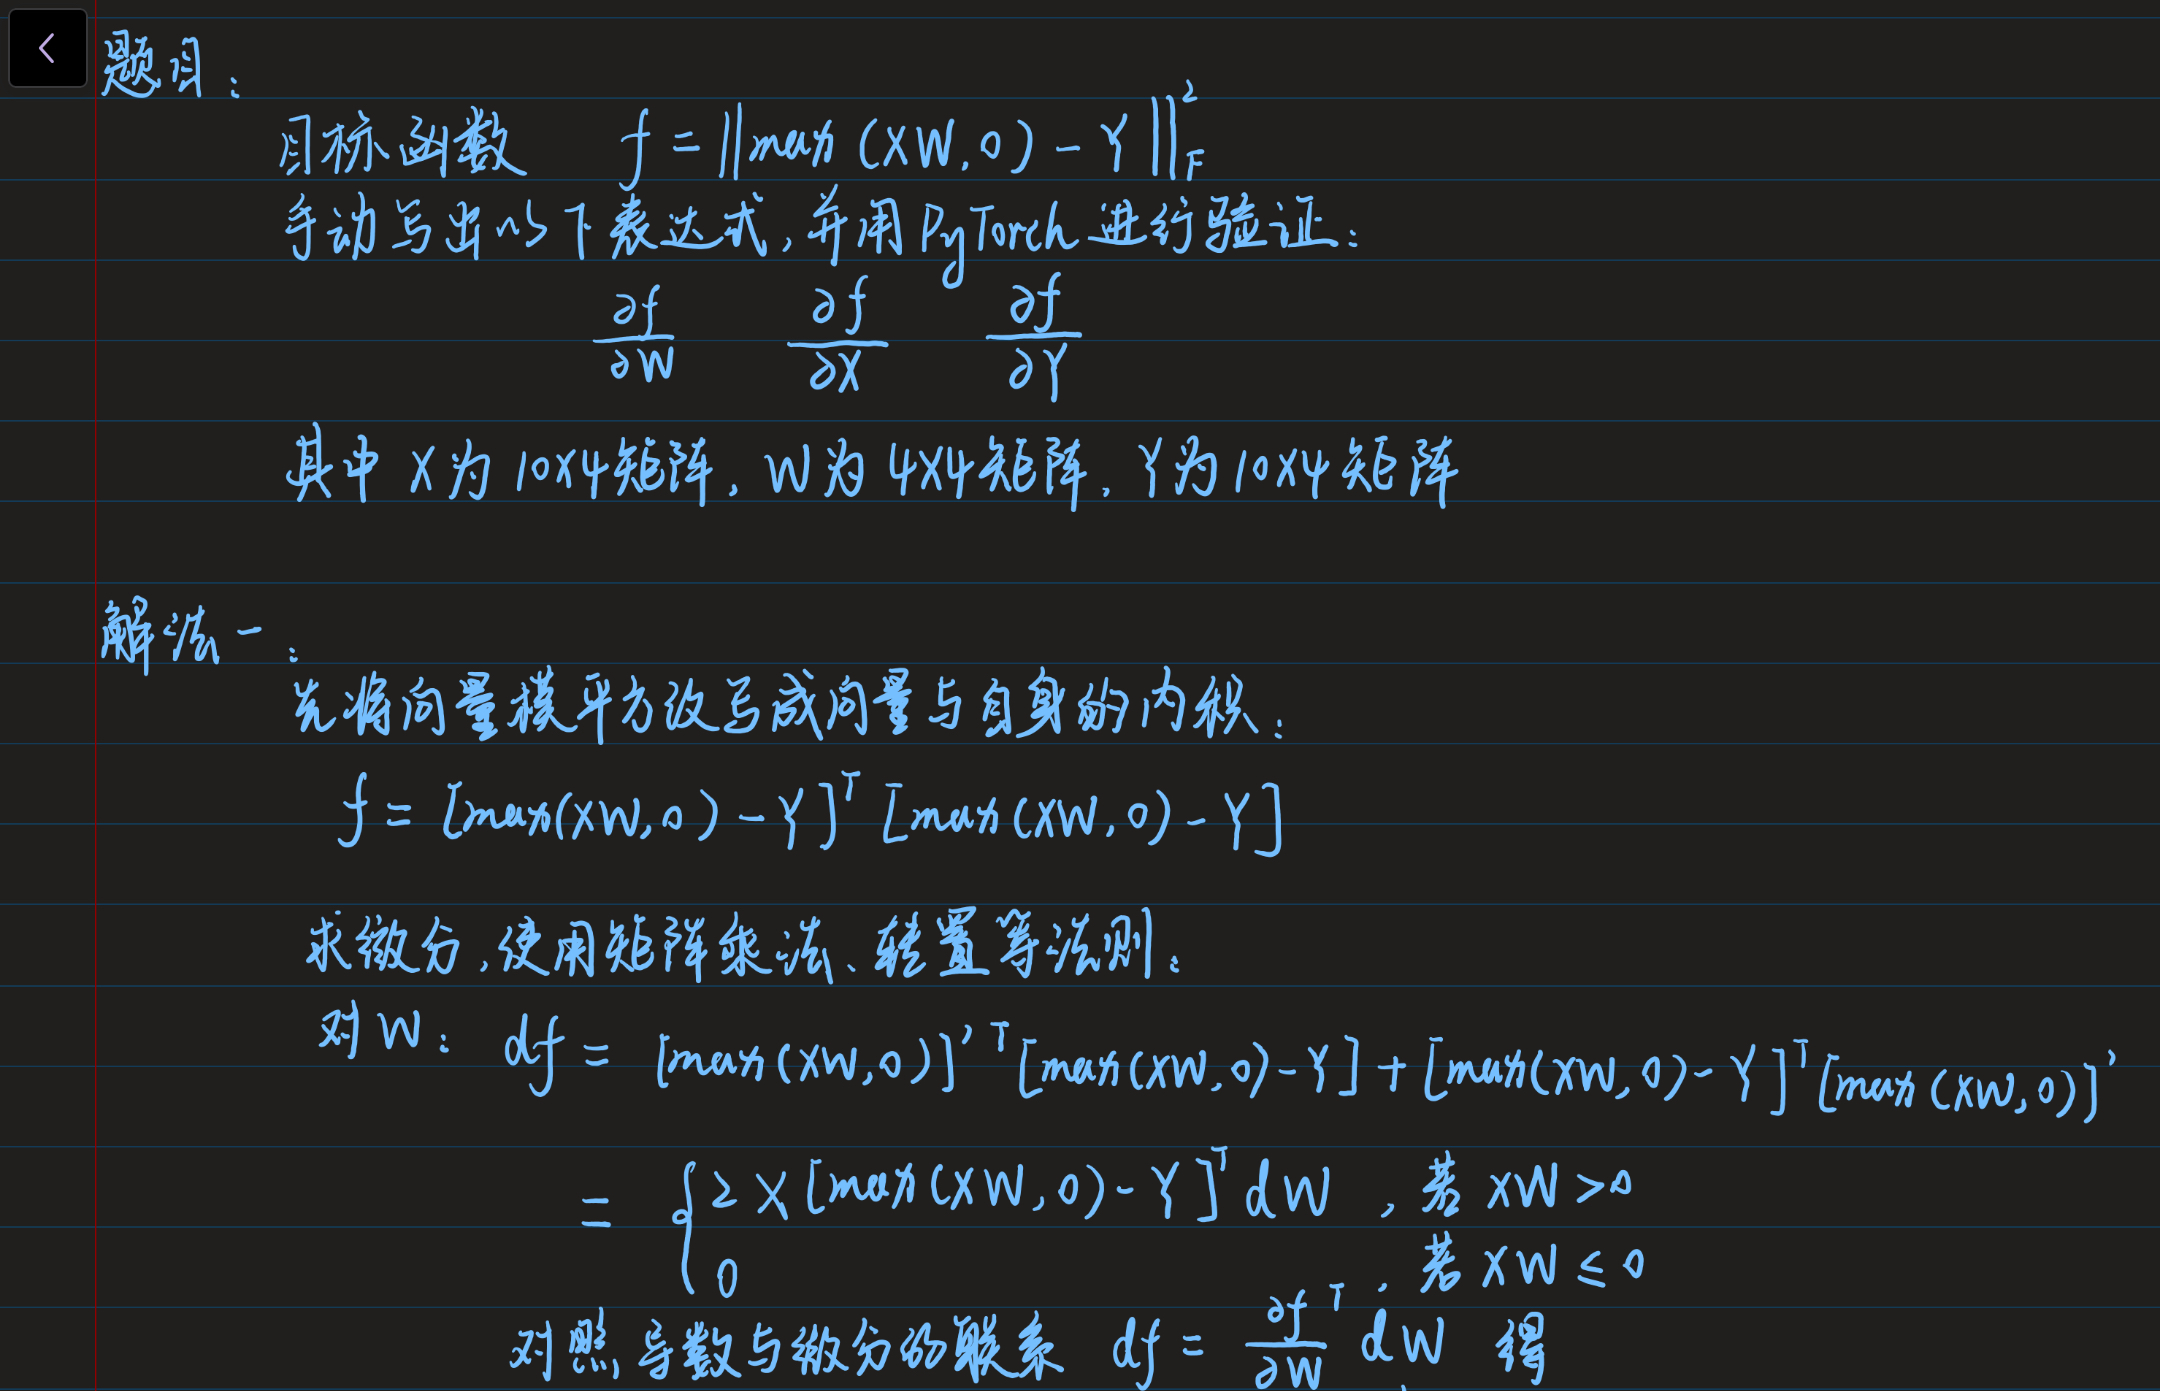 题目：
目标函数 f = ||max (XW, 0) - Y||²_F
手动写出以下表达式, 并用 PyTorch 进行验证：
∂f/∂W ∂f/∂X ∂f/∂Y
其中 X 为 10×4 矩阵, W 为 4×4 矩阵, Y 为 10×4 矩阵
解法一：
先将向量模平方改写成向量与自身的内积：
f = [max(XW, 0) - Y]ᵀ [max(XW, 0) - Y]
求微分, 使用矩阵乘法、转置等法则：
对 W： df = [max(XW, 0)]'ᵀ [max(XW, 0) - Y] + [max(XW, 0) - Y]ᵀ [max(XW, 0)]'
= { 2X [max(XW, 0) - Y]ᵀ dW , 若 XW > 0
0 , 若 XW ≤ 0
对照导数与微分的联系 df = ∂f/∂W ᵀ dW 得